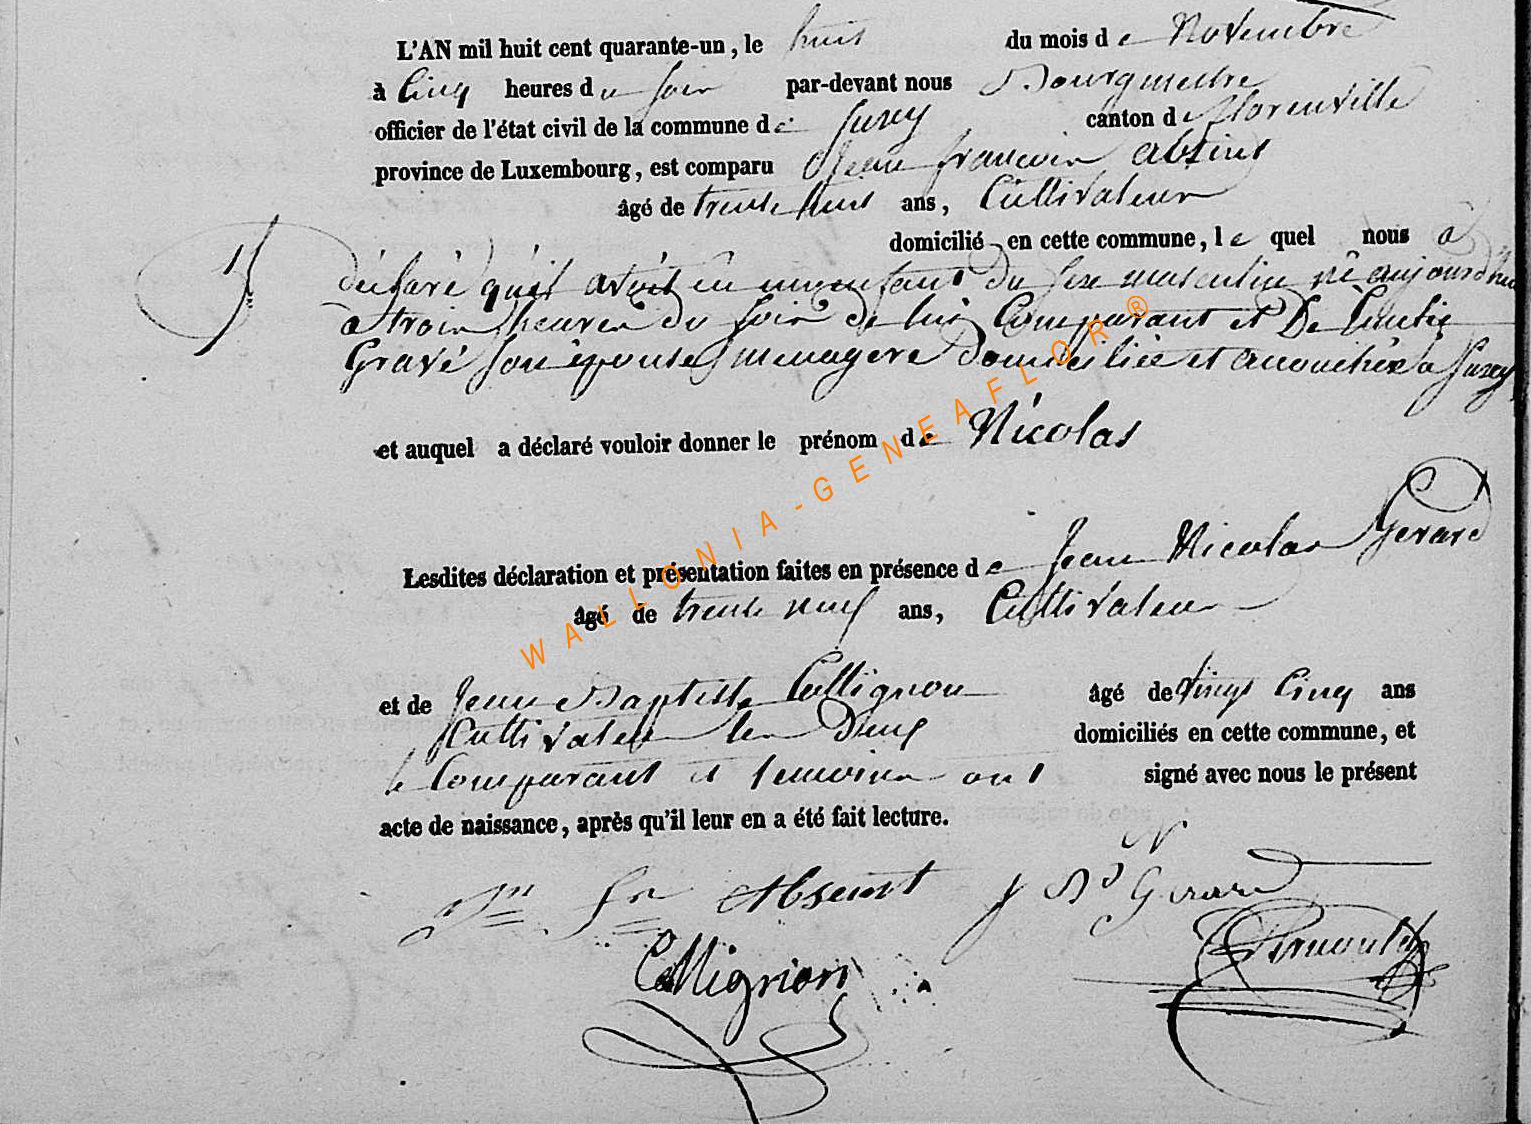 L'AN mil huit cent quarante-un, le huit du mois de Novembre
à Cinq heures du soir par-devant nous Bourgmestre
officier de l'état civil de la commune de Suxy canton de florenville
province de Luxembourg, est comparu Jean francois absint
âgé de trente huit ans, Cultivateur
domicilié en cette commune, le quel nous a
déclaré qu'il avoit eu un enfant du sexe masculin né aujourd'hui
a trois heures du soir de lui Comparant et De
Gravé son épouse menagere domiciliée et accouchée a Suxy
et auquel a déclaré vouloir donner le prénom de Nicolas
Lesdites déclaration et présentation faites en présence de Jean Nicolas Gerard
âgé de trente neuf ans, Cultivateur
et de Jean Baptiste Collignon âgé de vingt Cinq ans
Cultivateur les deux domiciliés en cette commune, et
le Comparant et temoins ont signé avec nous le présent
acte de naissance, après qu'il leur en a été fait lecture.
Jn fr Absent J N Gerard
Collignon
WALLONIA-GENEAFLOR®